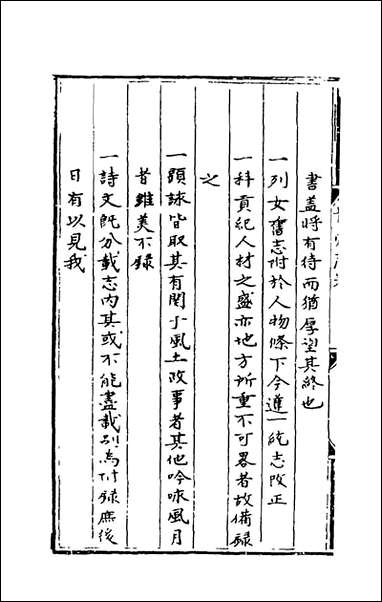 書蓋將有待而猶厚望其終也
一列女舊志附於人物條下今遵一統志改正
一科貢紀人材之盛亦地方所重不可畧者故備錄
之
一題詠皆取其有関于風土政事者其他吟咏風月
者雖美不錄
一詩文既分載志內其或不能盡載别為附録庶後
日有以見我